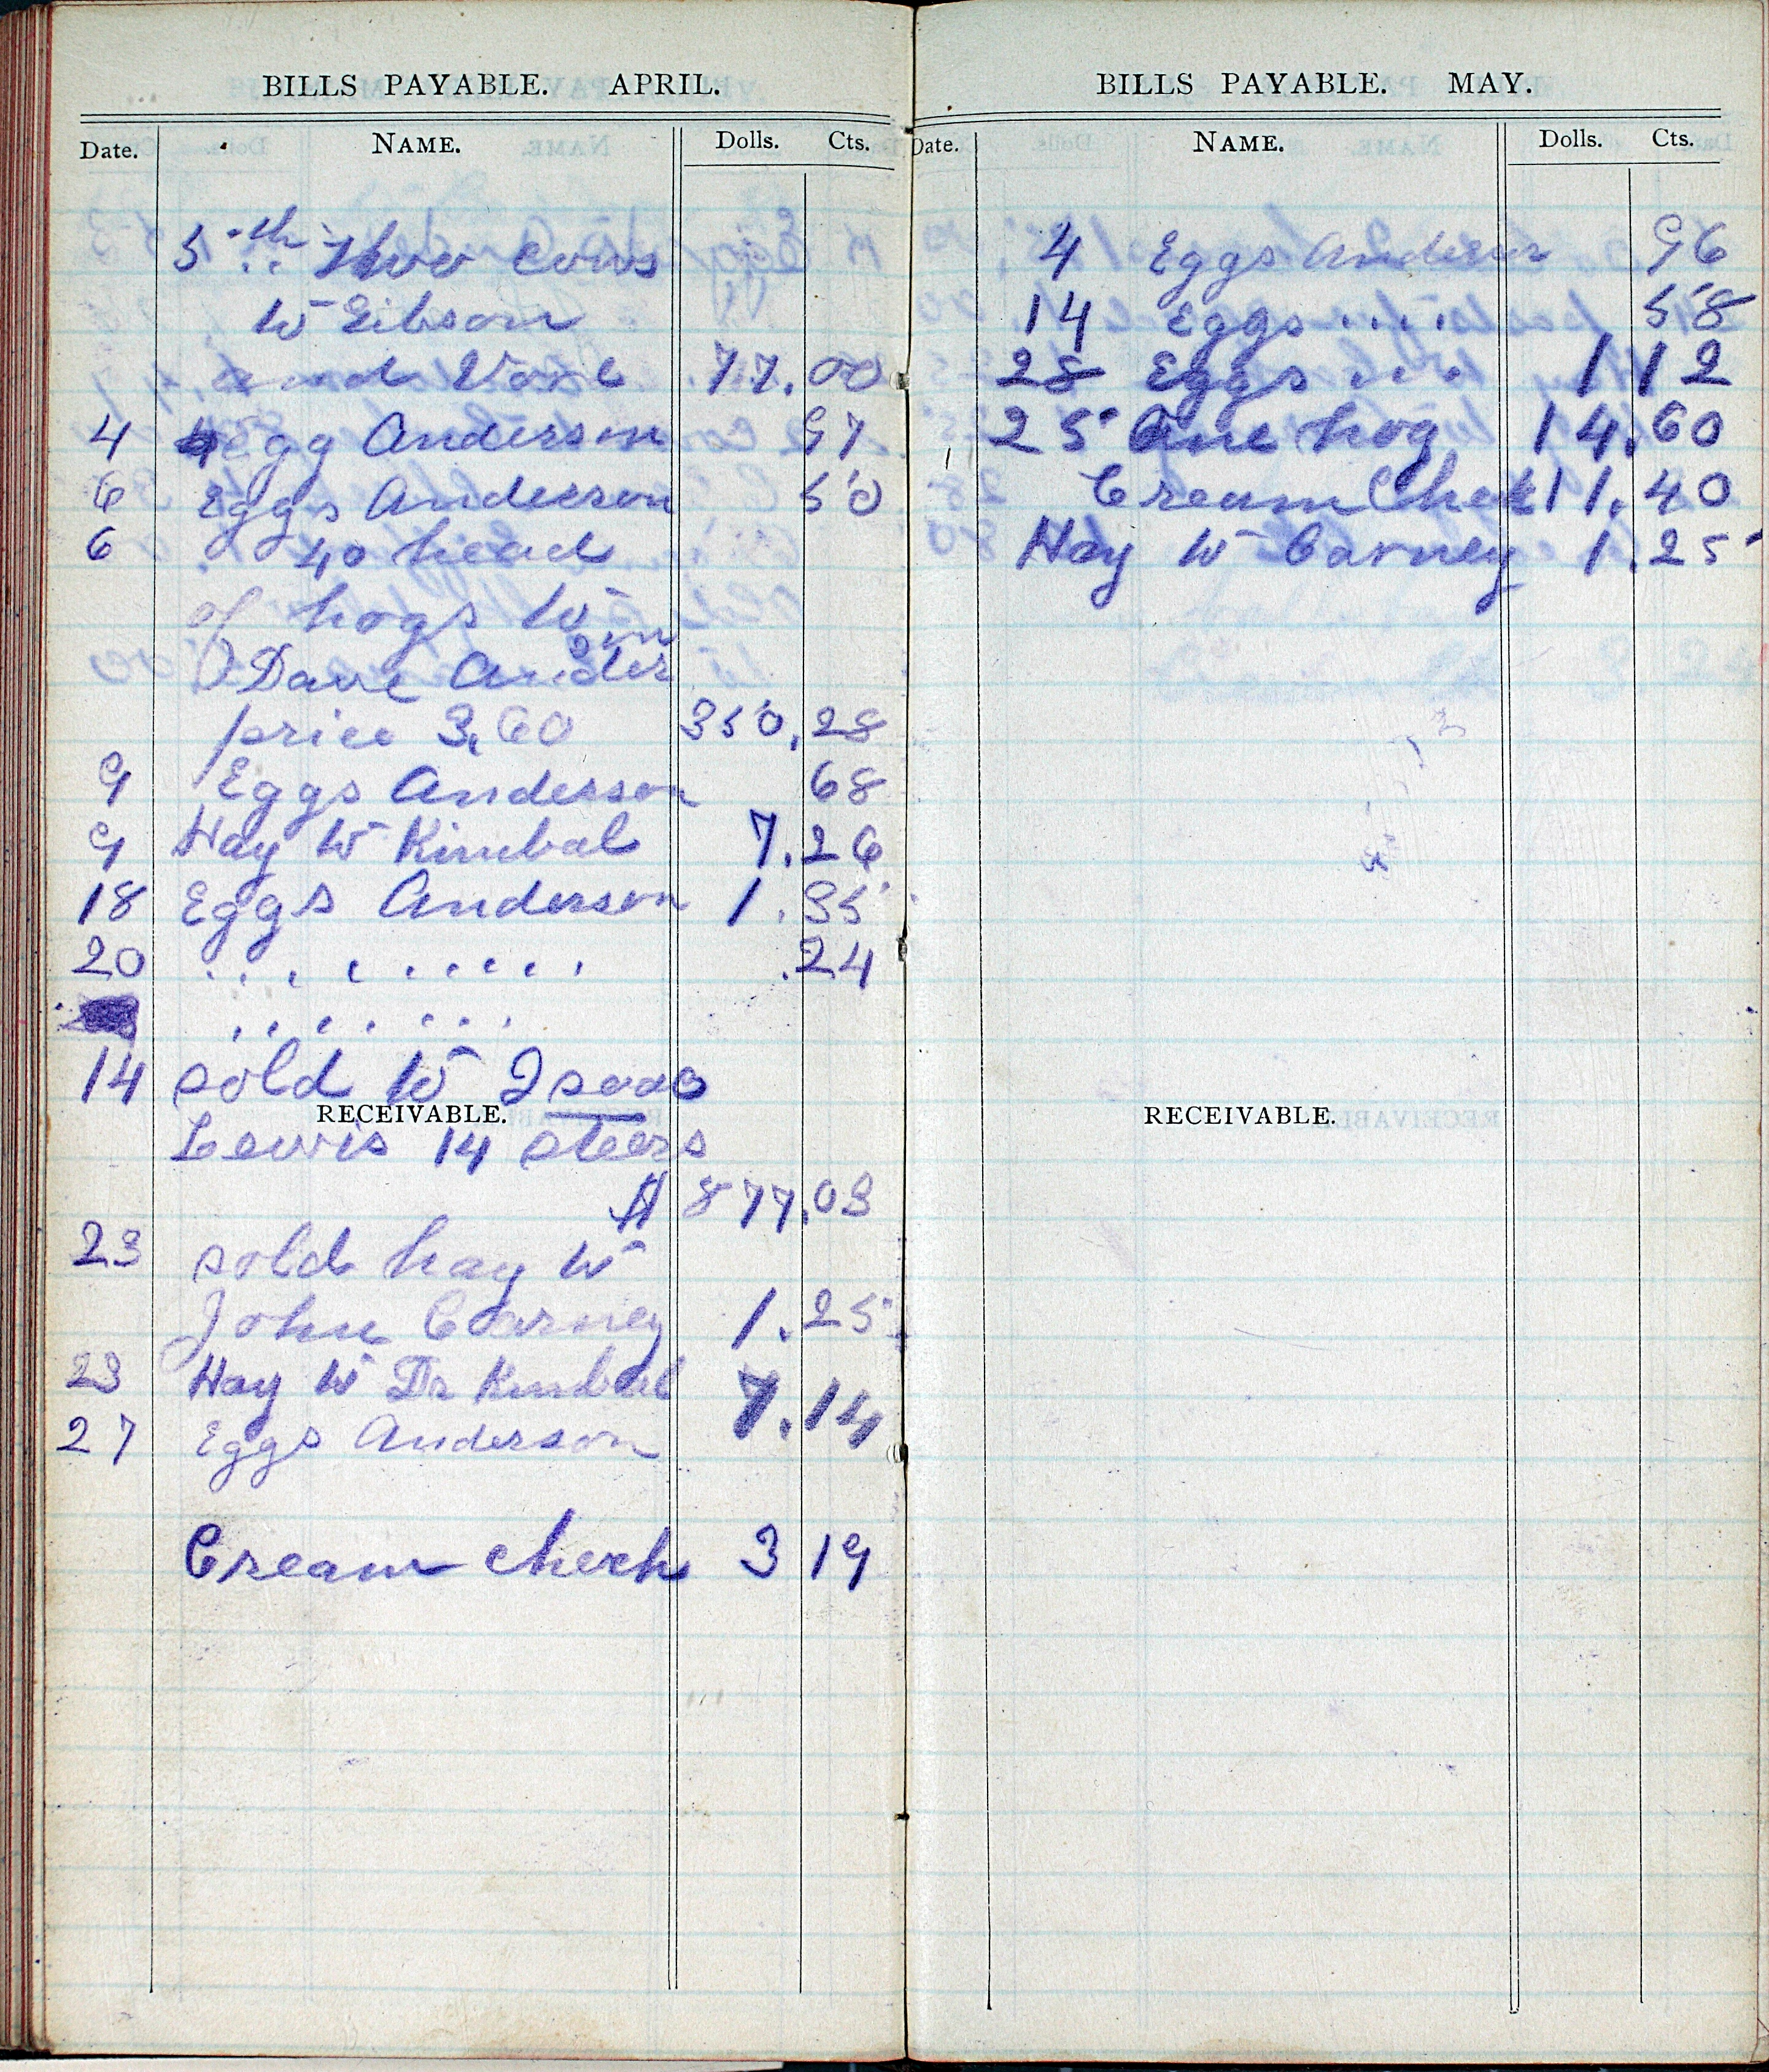 BILLS PAYABLE. APRIL.
Date. NAME. Dolls. Cts.
5th Thoo Cows
to Gibson
and Voxl 77.00
4 egg Anderson 97
6 Eggs Anderson 50
6 40 head
of hogs to
Dave Anderson
price 3,60 350,28
9 Eggs Anderson 68
9 Hay to Kimbal 7.26
18 Eggs Anderson 1.35
20 . . . . . . . . . .24
. . . . . . . .
14 sold to Isaac
RECEIVABLE.
Lewis 14 steers
$ 877.03
23 sold hay to
John Carney 1.25
23 Hay to Dr Kimbal 7.14
27 Eggs Anderson
Cream check 3 19
BILLS PAYABLE. MAY.
Date. NAME. Dolls. Cts.
4 Eggs Anderson 96
14 Eggs .... 58
28 Eggs ... 1 12
25 One hog 14.60
Cream Check 11.40
Hay to Carney 1.25
RECEIVABLE.